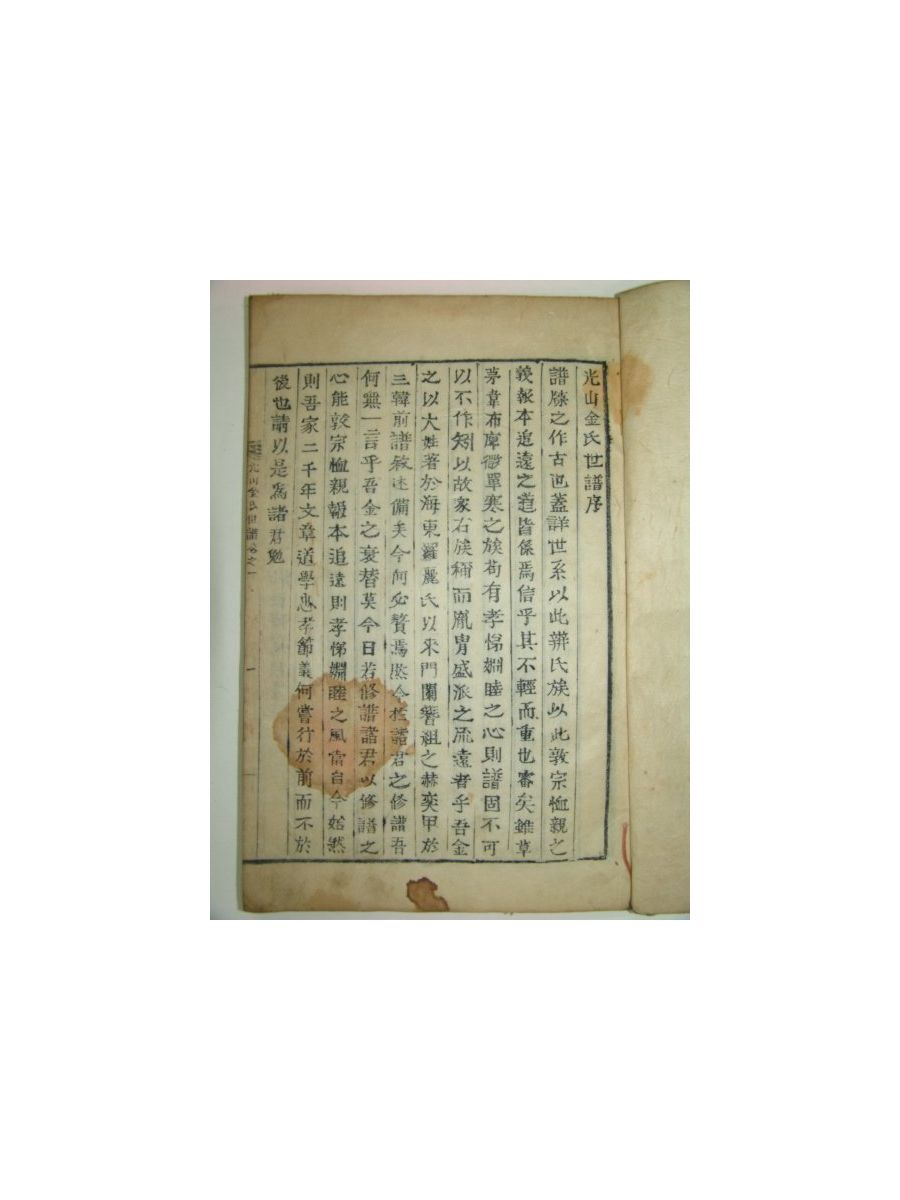 光山金氏世譜序
譜牒之作古也蓋詳世系以此辨氏族以此敦宗恤親之
義報本追遠之道皆係焉信乎其不輕而重也審矣雖草
茅韋布寒微單寒之族苟有孝悌婣睦之心則譜固不可
以不作矧以故家右族稱而胤胄盛派之流遠者乎吾金
之以大姓著於海東羅麗氏以來門闌簪組之赫奕甲於
三韓前譜敘述備矣今何必贅焉然今於諸君之修譜吾
何無一言乎吾金之衰替莫今日若修譜諸君以修譜之
心能敦宗恤親報本追遠則孝悌婣睦之風當自今始然
則吾家二千年文章道學忠孝節義何嘗行於前而不於
後也請以是爲諸君勉
光山金氏世譜卷之一
一